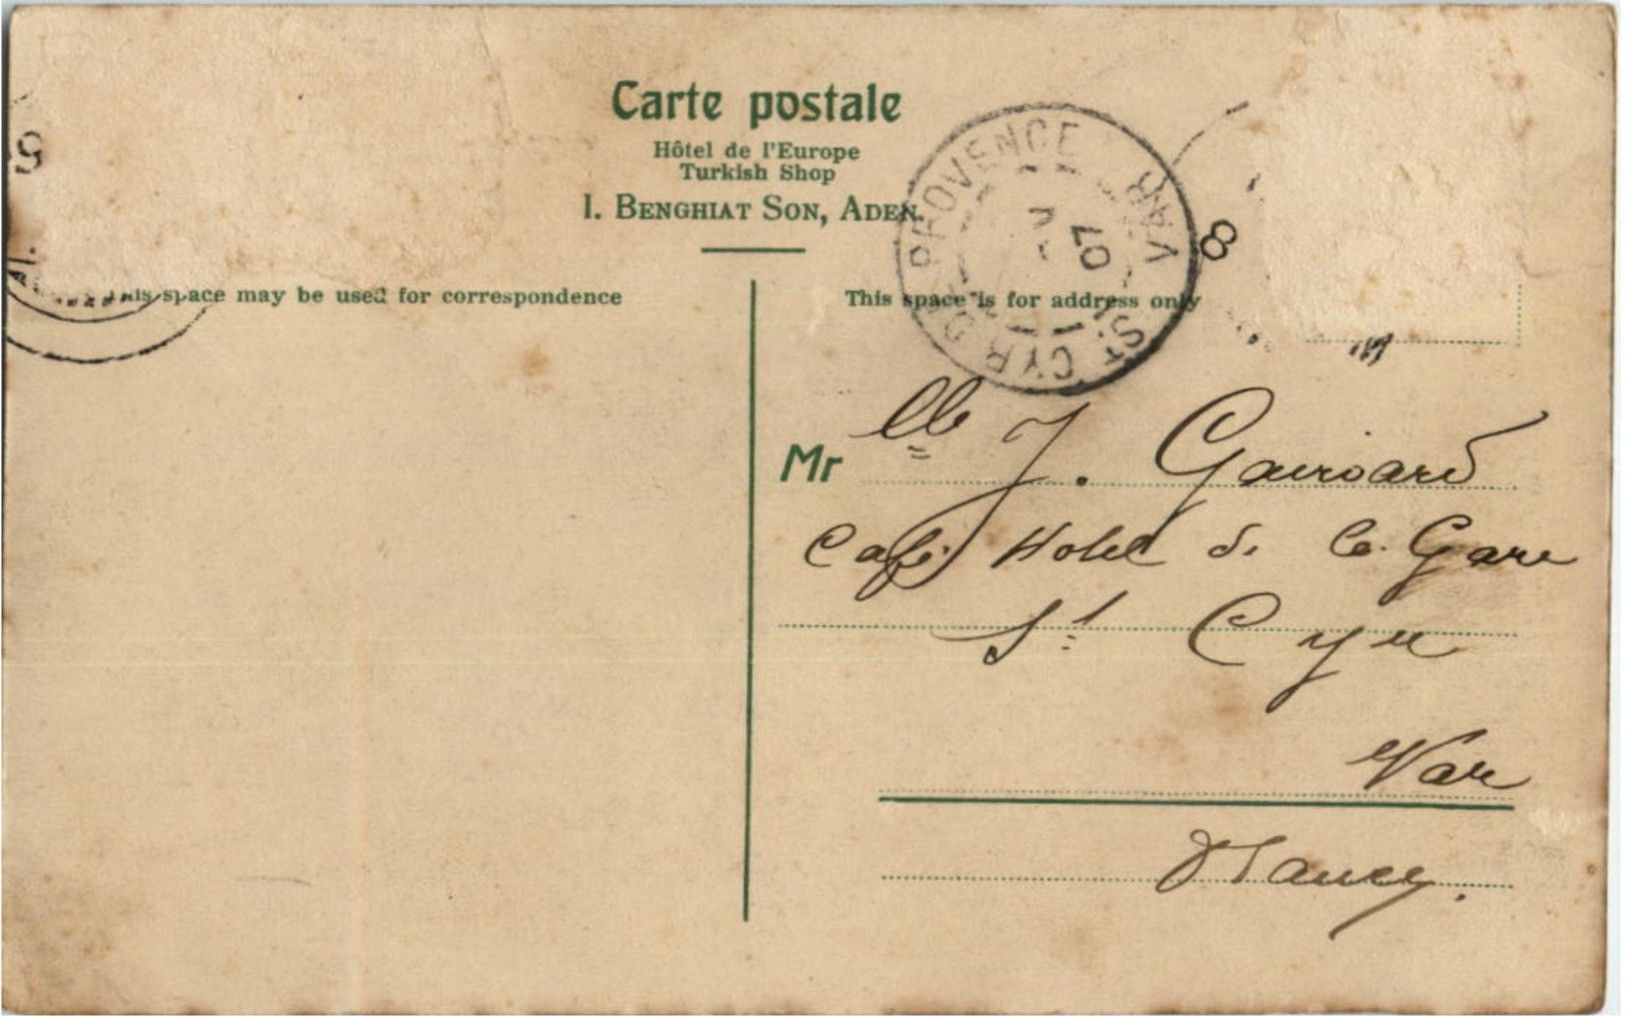 Carte postale
Hôtel de l'Europe
Turkish Shop
I. BENGHIAT SON, ADEN.
ST. CYR DE PROVENCE VAR
07
8
This space may be used for correspondence
This space is for address only
Mr lle J. Gairoard
Café Hotel de la Gare
St Cyr
Var
France.